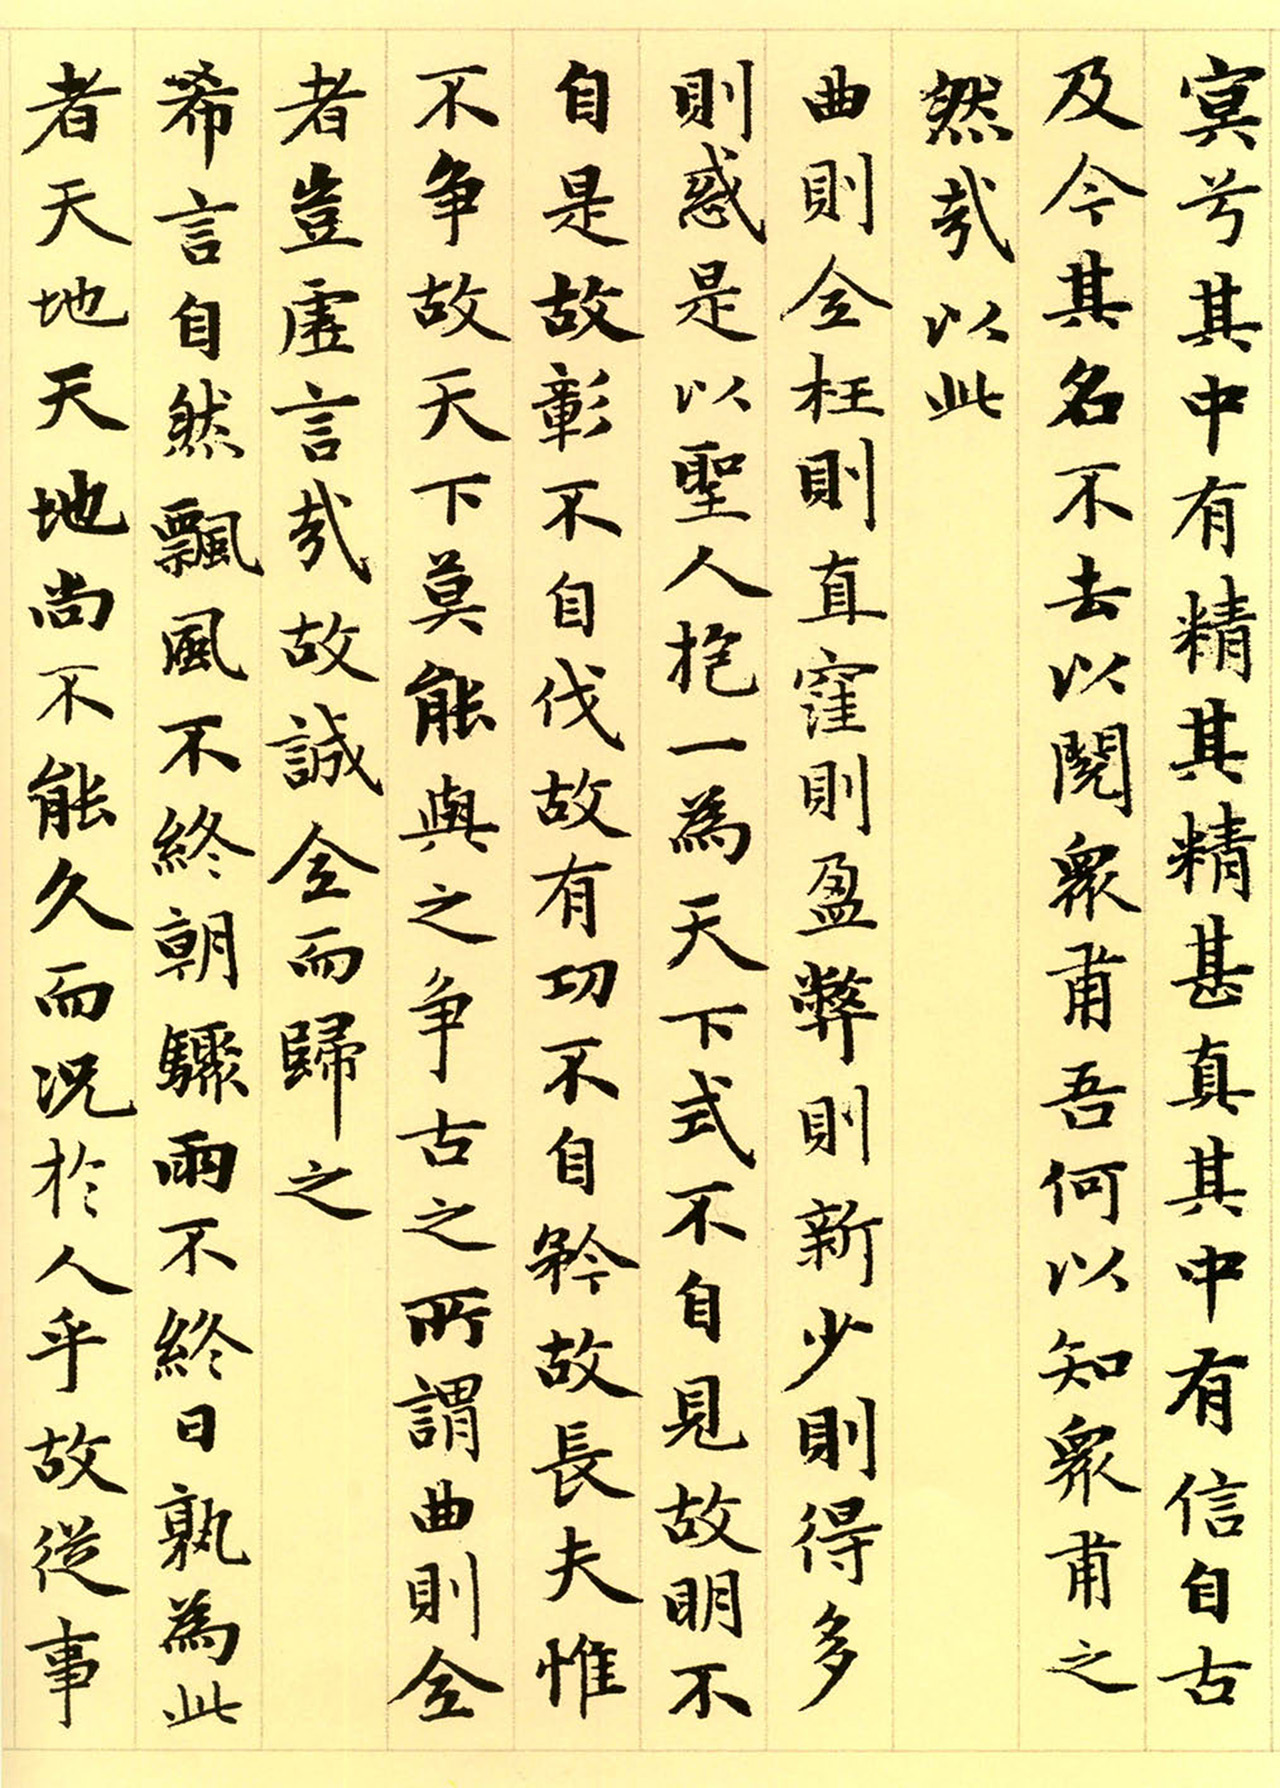 寘兮其中有精其精甚真其中有信自古
及今其名不去以閱衆甫吾何以知衆甫之
然哉以此
曲則全枉則直窪則盈弊則新少則得多
則惑是以聖人抱一為天下式不自見故明不
自是故彰不自伐故有功不自矜故長夫惟
不争故天下莫能與之争古之所謂曲則全
者豈虛言哉故誠全而歸之
希言自然飄風不終朝驟雨不終日孰為此
者天地天地尚不能久而况於人乎故從事